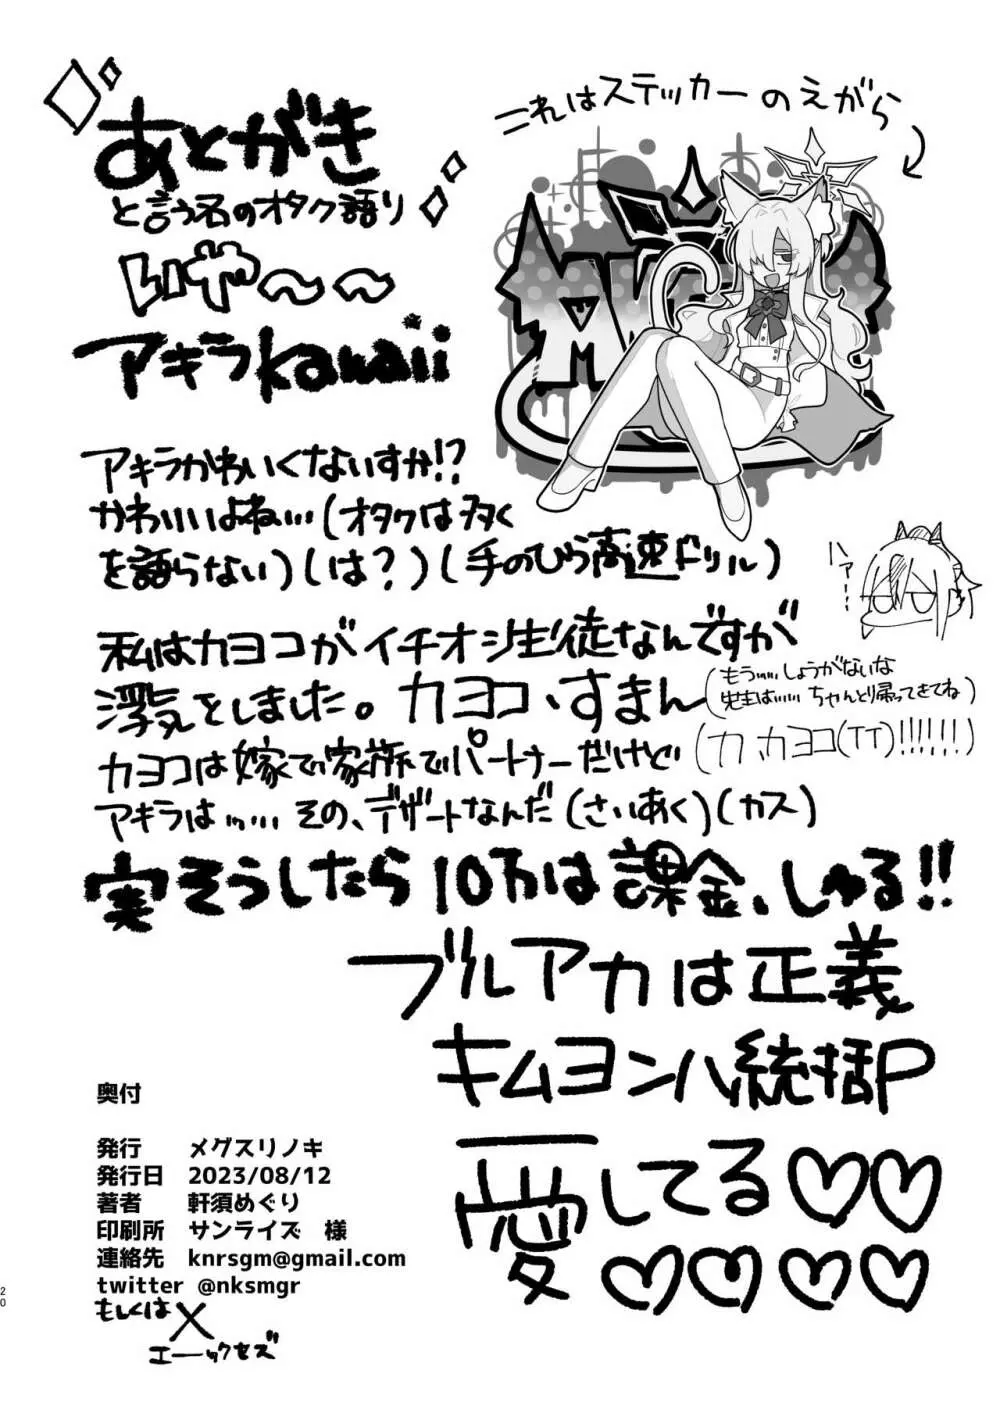 あとがき
と言う名のオタク語り
いや〜〜
アキラkawaii
これはステッカーのえがら
アキラかわいくないすか!?
かわいいよね…(オタクは多く
を語らない)(は?)(手のひら高速ドリル)
ハァー…
私はカヨコがイチオシ生徒なんですが
浮気をしました。カヨコ、すまん
(もう…しょうがないな
先生は……ちゃんと帰ってきてね)
カヨコは嫁で家族でパートナーだけど
(カ、カヨコ(TT)!!!!!!)
アキラは……その、デザートなんだ(さいあく)(カス)
実そうしたら10万は課金、しゅる!!
ブルアカは正義
キムヨンハ統括P
愛してる♡♡
♡♡♡♡
奥付
発行 メグスリノキ
発行日 2023/08/12
著者 軒須めぐり
印刷所 サンライズ 様
連絡先 knrsgm@gmail.com
twitter @nksmgr
もしくは X
エーックセズ
20